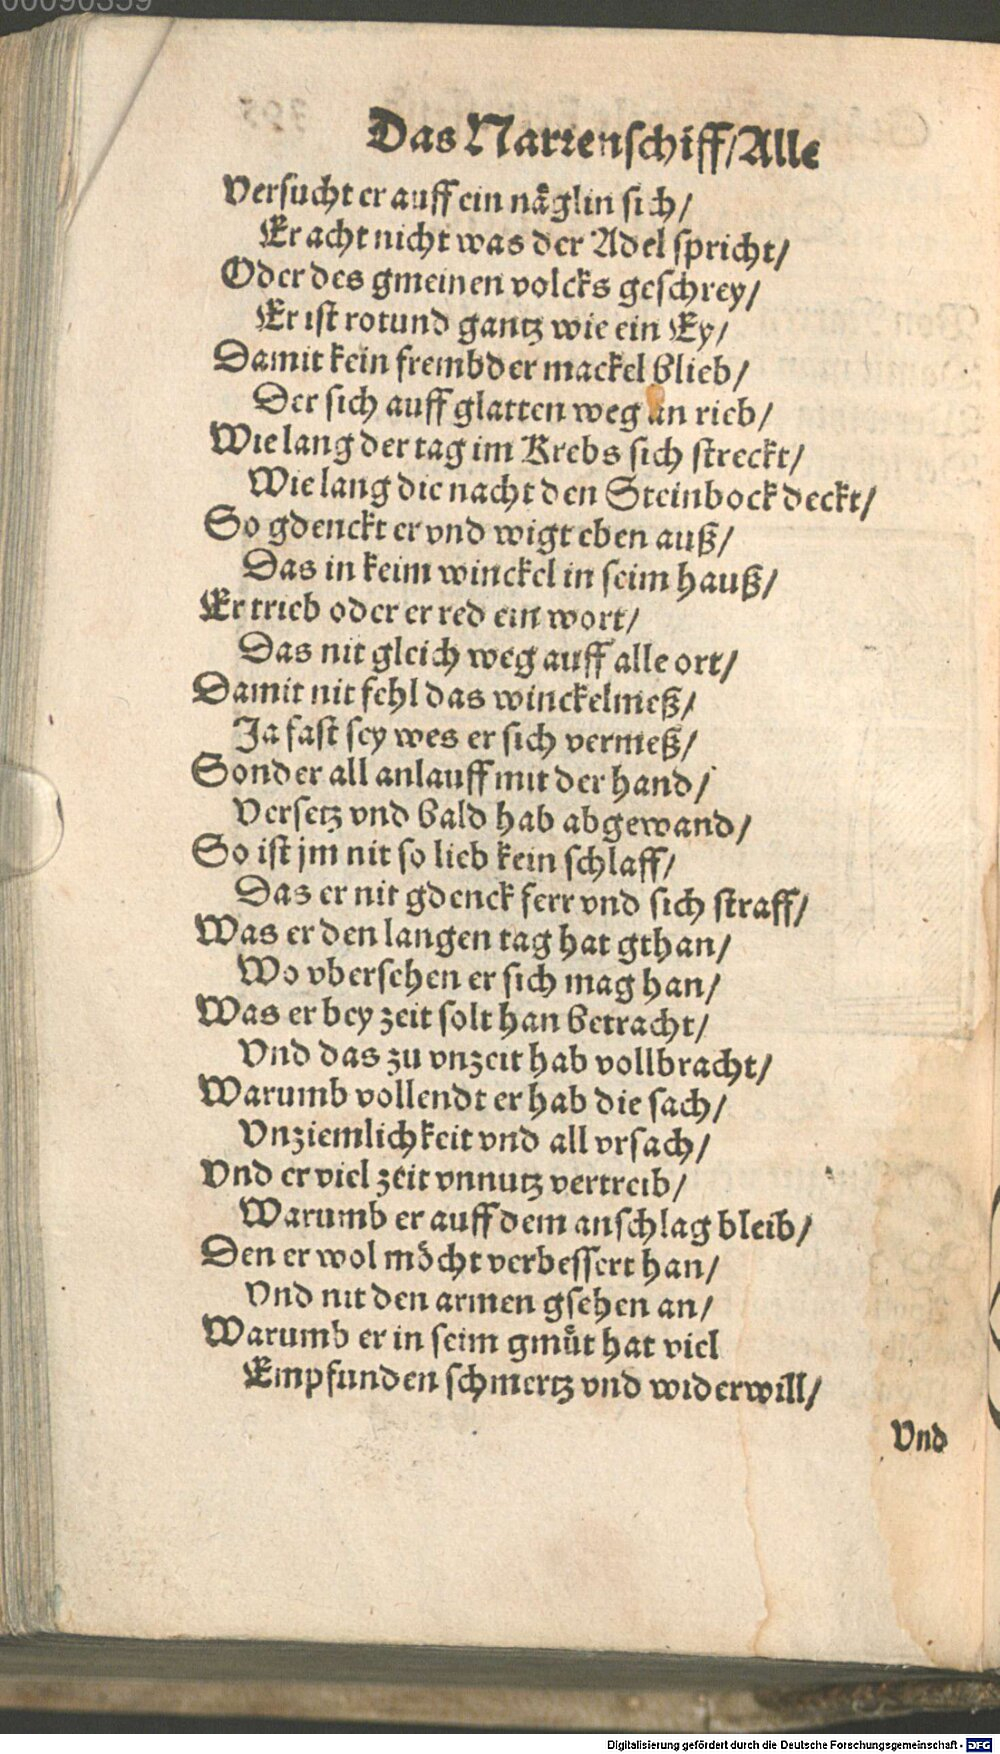 00090359
Das Narrenschiff/ Alle
Versucht er auff ein näglin sich/
Er acht nicht was der Adel spricht/
Oder des gmeinen volcks geschrey/
Er ist rotund gantz wie ein Ey/
Damit kein frembder mackel blieb/
Der sich auff glatten weg an rieb/
Wie lang der tag im Krebs sich streckt/
Wie lang die nacht den Steinbock deckt/
So gdenckt er vnd wigt eben auß/
Das in keim winckel in seim hauß/
Er trieb oder er red ein wort/
Das nit gleich weg auff alle ort/
Damit nit fehl das winckelmeß/
Ja fast sey wes er sich vermeß/
Sonder all anlauff mit der hand/
Versetz vnd bald hab abgewand/
So ist jm nit so lieb kein schlaff/
Das er nit gdenck ferr vnd sich straff/
Was er den langen tag hat gthan/
Wo vbersehen er sich mag han/
Was er bey zeit solt han betracht/
Vnd das zu vnzeit hab vollbracht/
Warumb vollendt er hab die sach/
Vnziemlichkeit vnd all vrsach/
Vnd er viel zeit vnnutz vertreib/
Warumb er auff dem anschlag bleib/
Den er wol möcht verbessert han/
Vnd nit den armen gsehen an/
Warumb er in seim gmüt hat viel
Empfunden schmertz vnd widerwill/
Vnd
Digitalisierung gefördert durch die Deutsche Forschungsgemeinschaft - DFG